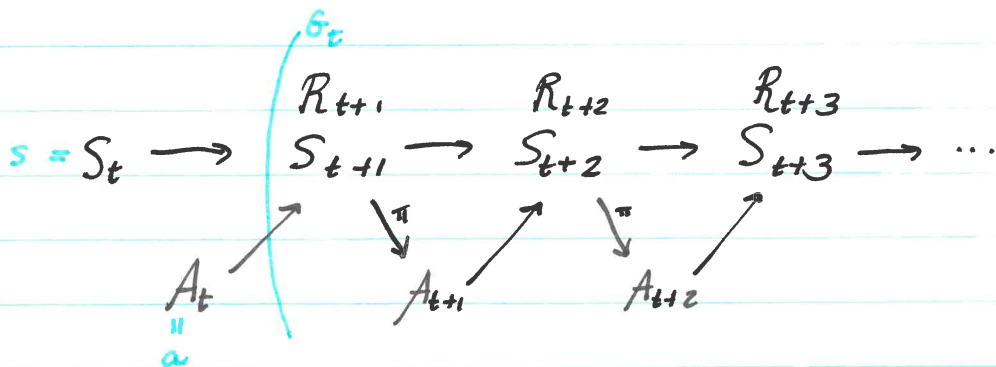 G_t
R_{t+1} R_{t+2} R_{t+3}
s = S_t → S_{t+1} → S_{t+2} → S_{t+3} → ...
π π
A_t A_{t+1} A_{t+2}
=
a